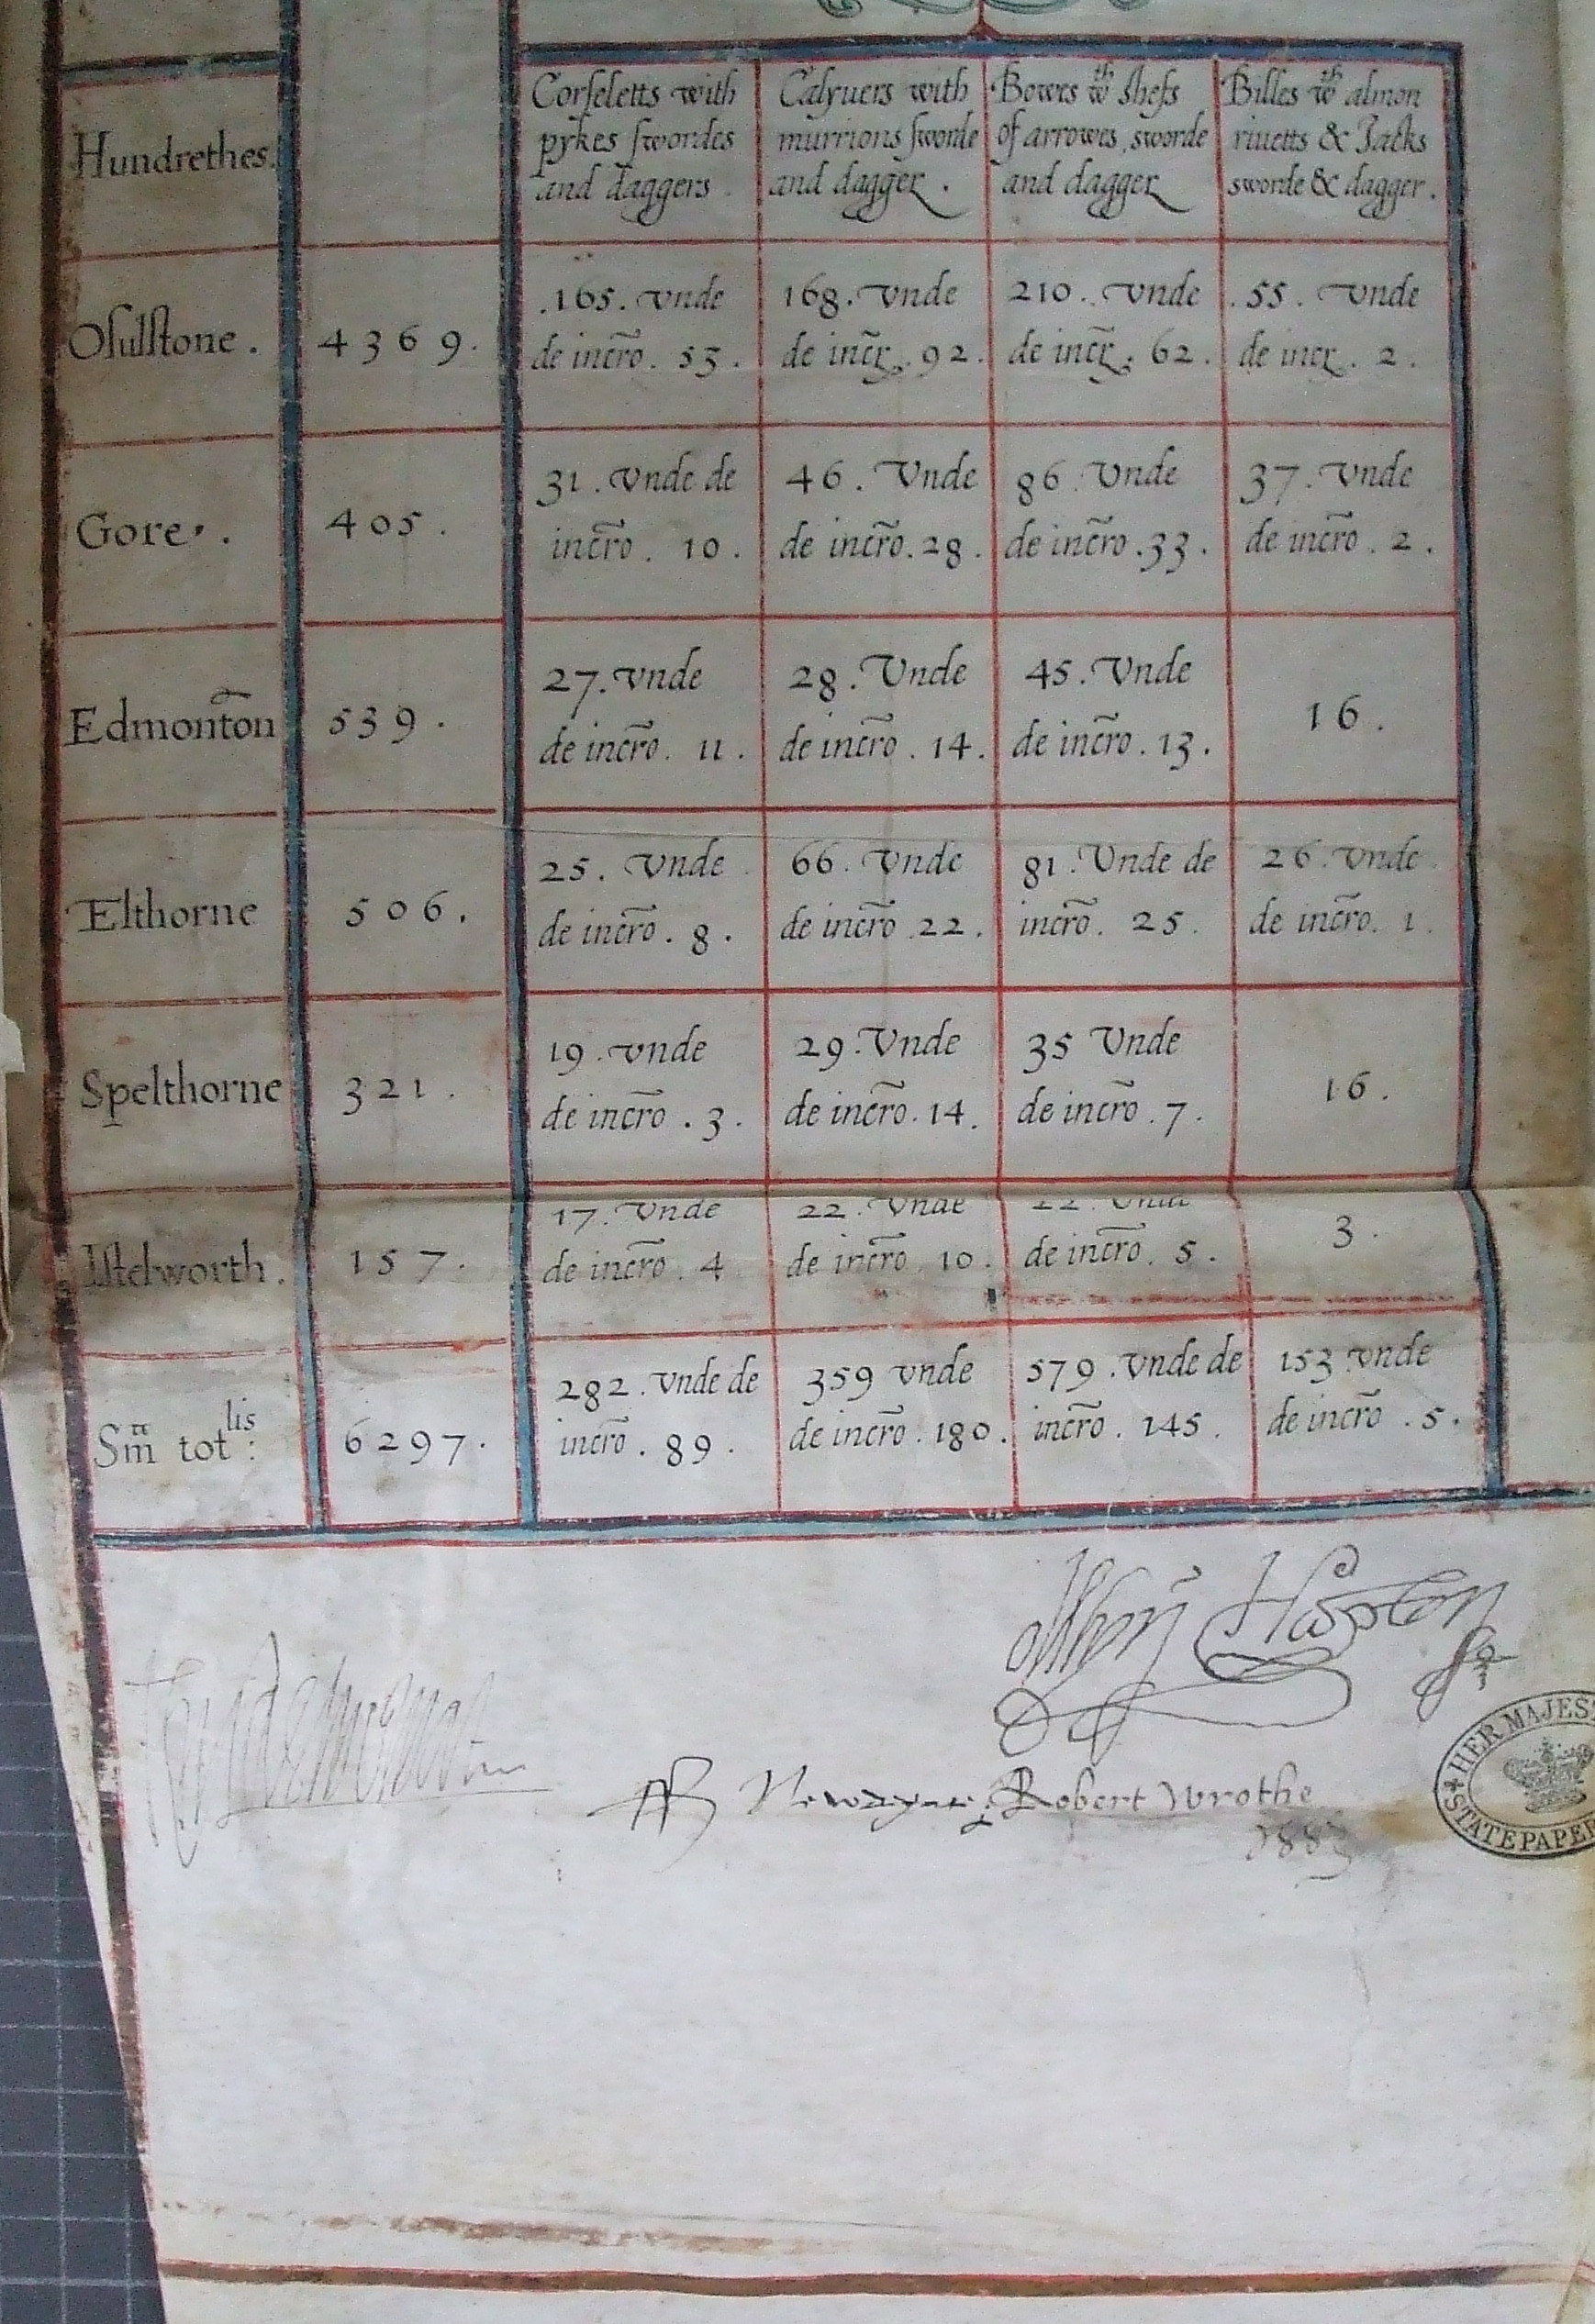 Hundrethes.
Corseletts with
pykes swordes
and daggers
Calyuers with
murrions sworde
and dagger.
Bowes wth shefs
of arrowes, sworde
and dagger
Billes wth almon
riuetts & Jacks
sworde & dagger.
Osulstone.
4369.
.165. vnde
de incro. 53.
168. vnde
de incr. 92.
210. vnde
de incr. 62.
.55. vnde
de incr. 2.
Gore.
405.
31. vnde de
incro. 10.
46. Vnde
de incro. 28.
86. Vnde
de incro. 33.
37. Vnde
de incro. 2.
Edmonton
539.
27. vnde
de incro. 11.
28. Vnde
de incro. 14.
45. Vnde
de incro. 13.
16.
Elthorne
506.
25. vnde
de incro. 8.
66. vnde
de incro. 22.
81. Vnde de
incro. 25.
26. vnde
de incro. 1.
Spelthorne
321.
19. vnde
de incro. 3.
29. Vnde
de incro. 14.
35 Vnde
de incro. 7.
16.
Istelworth.
157.
17. vnde
de incro. 4
22. vnde
de incro. 10.
22. vnde
de incro. 5.
3.
Sm totlis:
6297.
282. vnde de
incro. 89.
359 vnde
de incro. 180.
579. vnde de
incro. 145.
153 vnde
de incro. 5.
Robert Wrothe
HER MAJES
STATE PAPER